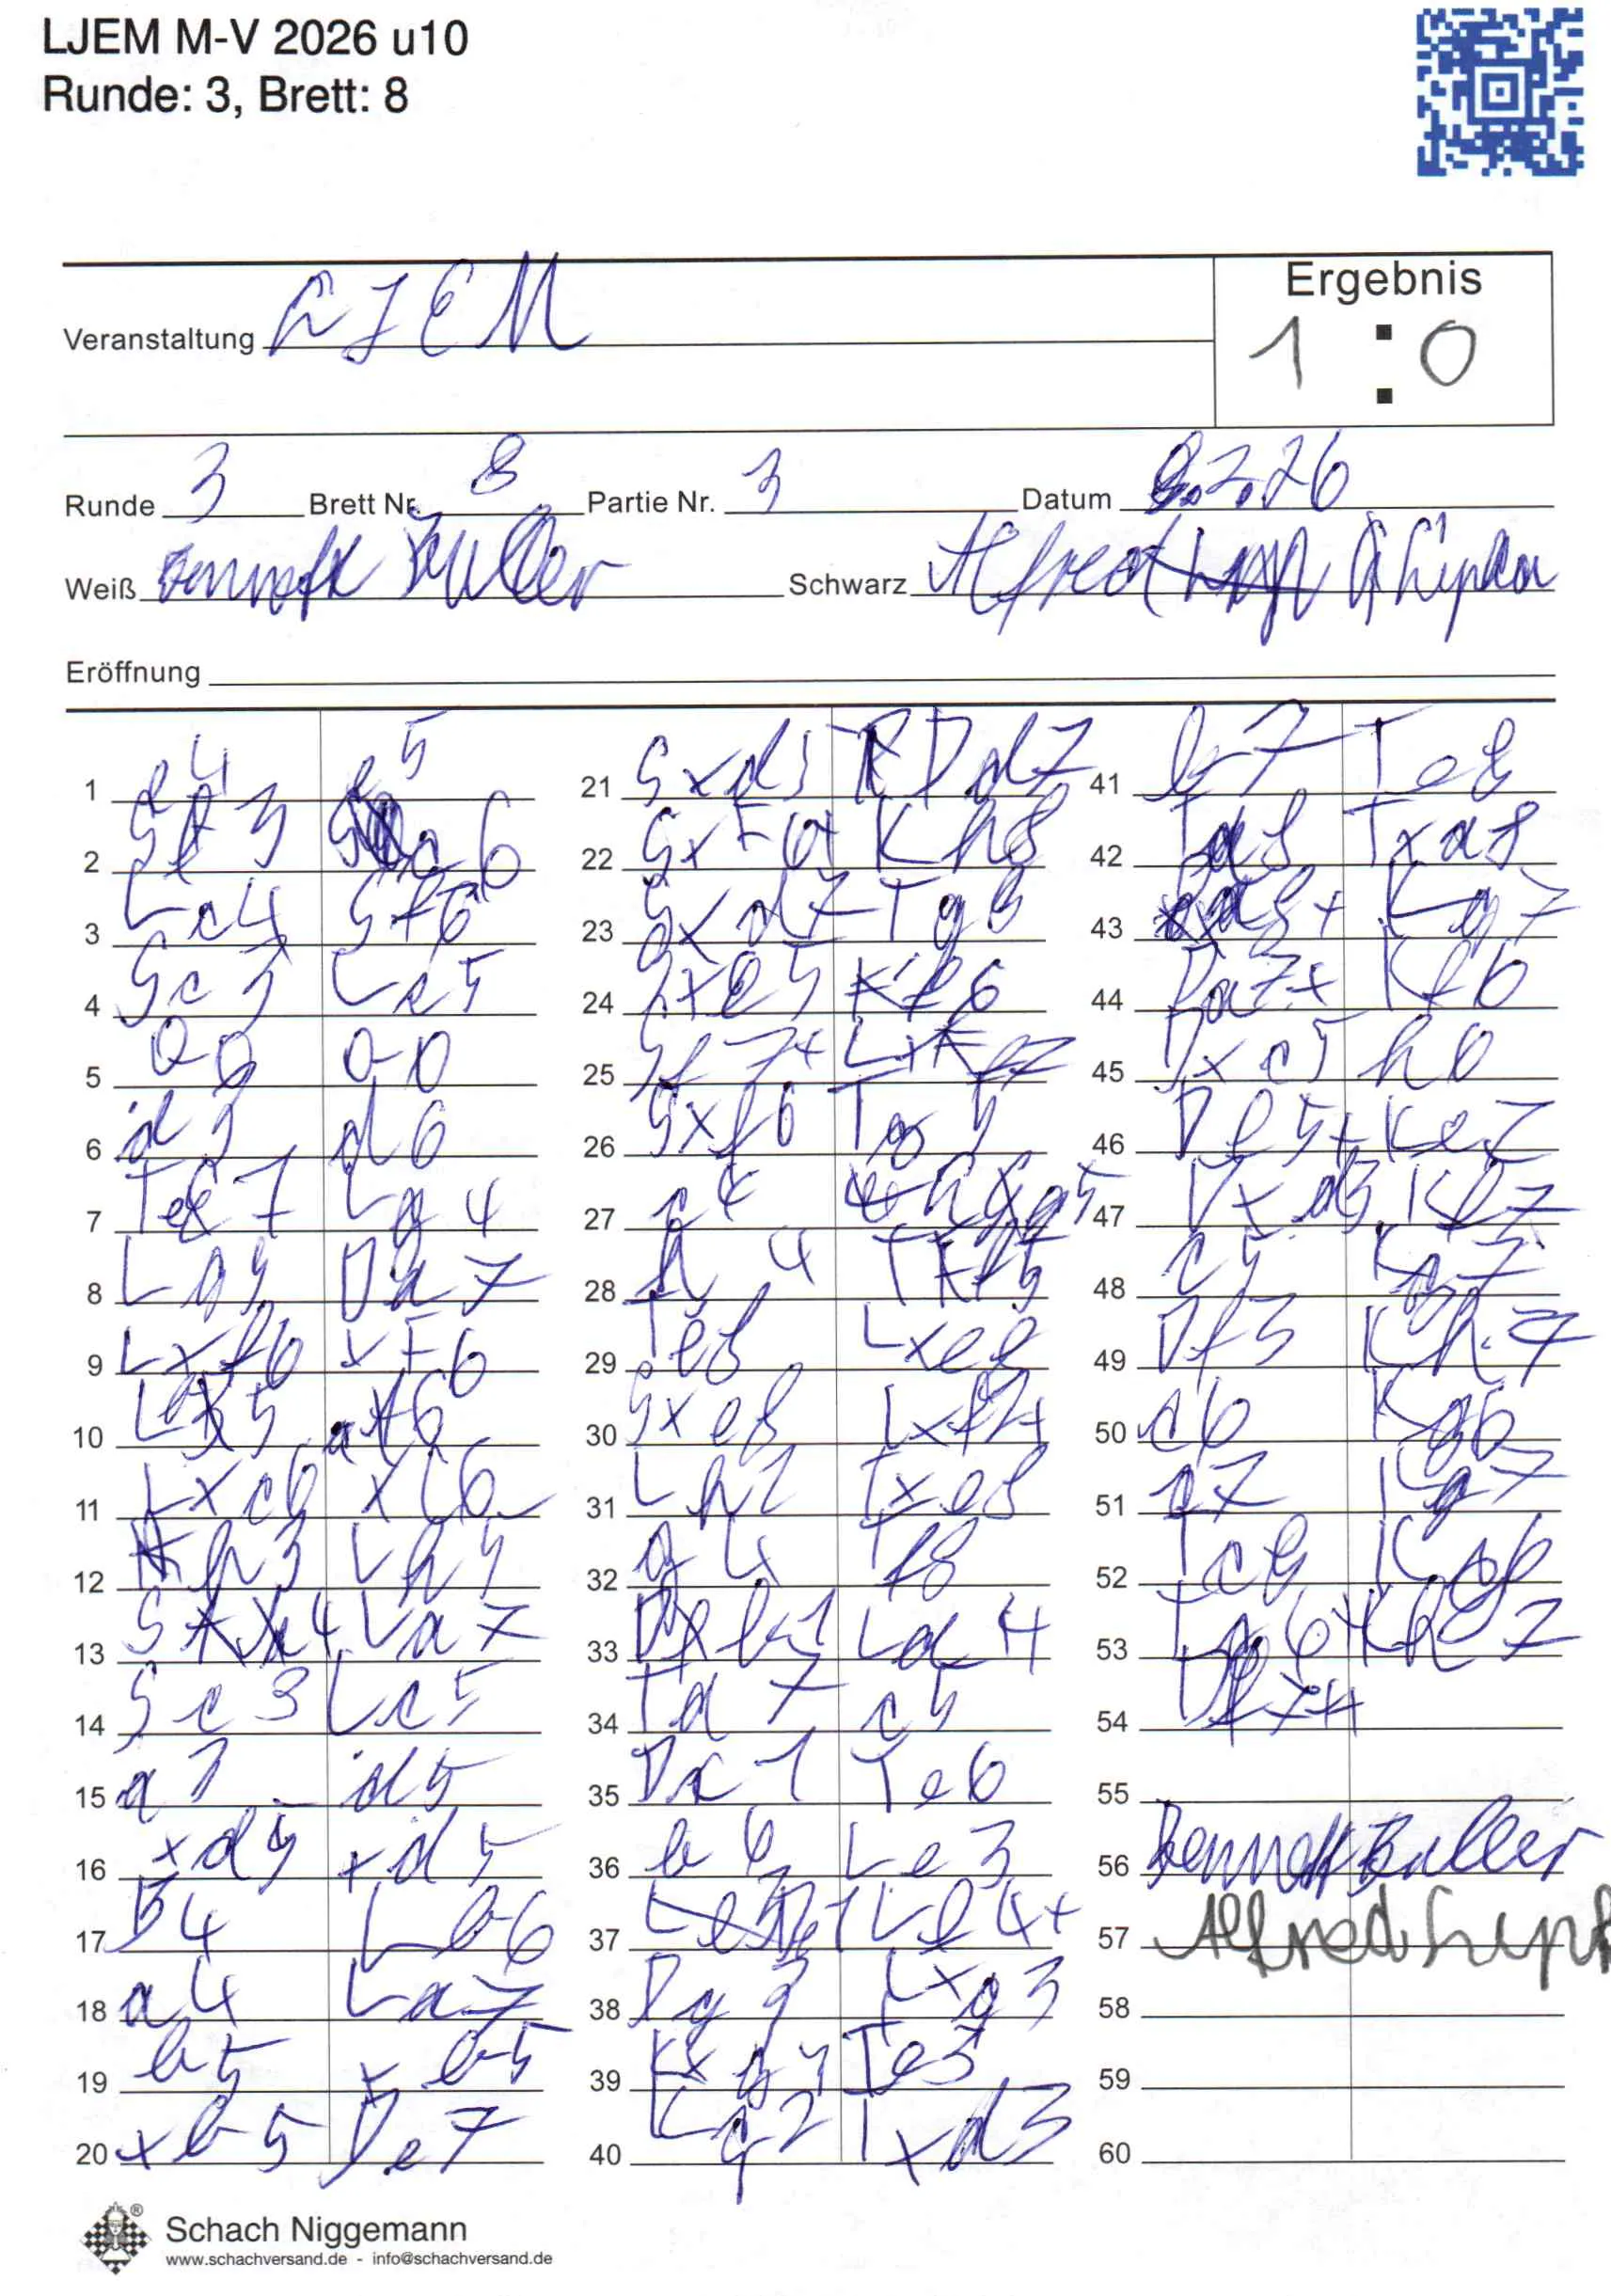 LJEM M-V 2026 u10
Runde: 3, Brett: 8
Ergebnis
Veranstaltung LJEM
1 : 0
Runde 3 Brett Nr. 8 Partie Nr. 3 Datum 8.2.26
Weiß Schwarz Alfred
Eröffnung
1 e4 e5
2 Sf3 Sc6
3 Lc4 Sf6
4 Sc3 Lc5
5 0-0 0-0
6 d3 d6
7 Te1 Lg4
8 Lg5 Dd7
9 Lxf6 xf6
10 Lb5 a6
11 Lxc6 xc6
12 h3 Lh5
13 Sa4 La7
14 Sc3 Lc5
15 a3 d5
16 xd5 xd5
17 b4 Lb6
18 a4 La7
19 b5 xb5
20 xb5 De7
21 Sxd5 Dd7
22 Sxf6+ Kh8
23 Sxd7 Tg8
24 Sxe5 f6
25 Sf7+ Lxf7
26 Sxf6 Tg5
27 c4 xg5
28 h4 Tf5
29 Te8 Lxe8
30 Sxe8 Lxf2+
31 Lh2 Txe8
32 g4 Tf8
33 Db1 Ld4
34 Ta7 c5
35 Dc1 Te6
36 b6 Le3
37 Lf4+
38 Dg3 Lxg3
39 Kxg3 Te3
40 Kg2 Txd3
41 b7 Te8
42 Ta8 Txa8
43 xa8+ Kg7
44 Da7+ Kf6
45 Dxc5 h6
46 Df5+ Ke7
47 Dxd3 Kf7
48 c5 Kg7
49 Df3 Kh7
50 c6 Kg6
51 c7 Kg7
52 Tc8 Kg6
53 Tg6+ Kh7
54 Df7+
55
56 Bennett Buller
57 Alfred
58
59
60
Schach Niggemann
www.schachversand.de - info@schachversand.de